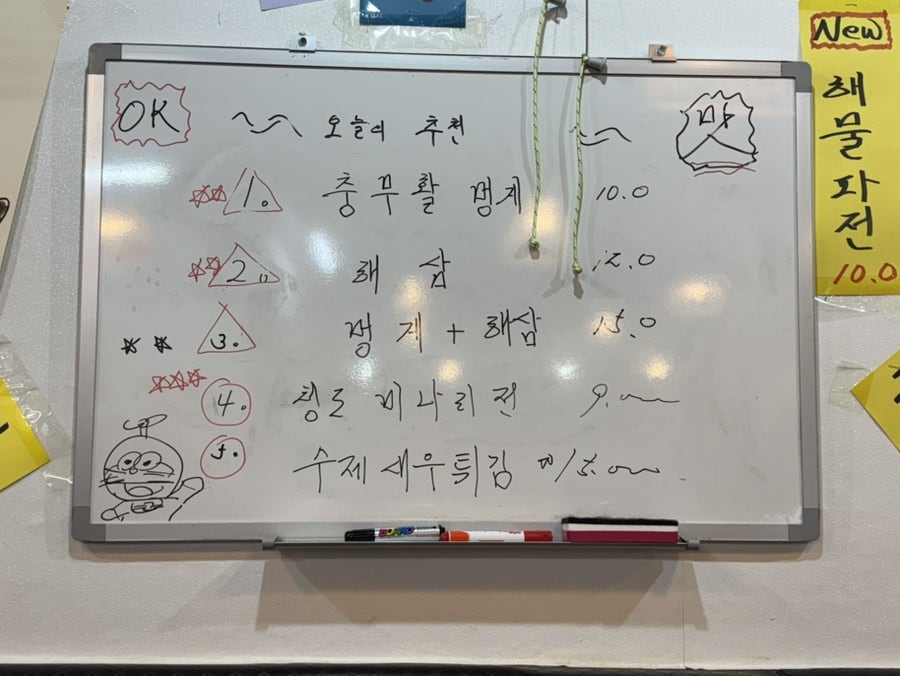 OK
~ 오늘의 추천 ~
맛
1. 충무활 멍게 10.0
2. 해삼 12.0
3. 멍게 + 해삼 15.0
4. 청도 미나리전 9.000
5. 수제새우튀김 15.000
New
해물파전
10.0